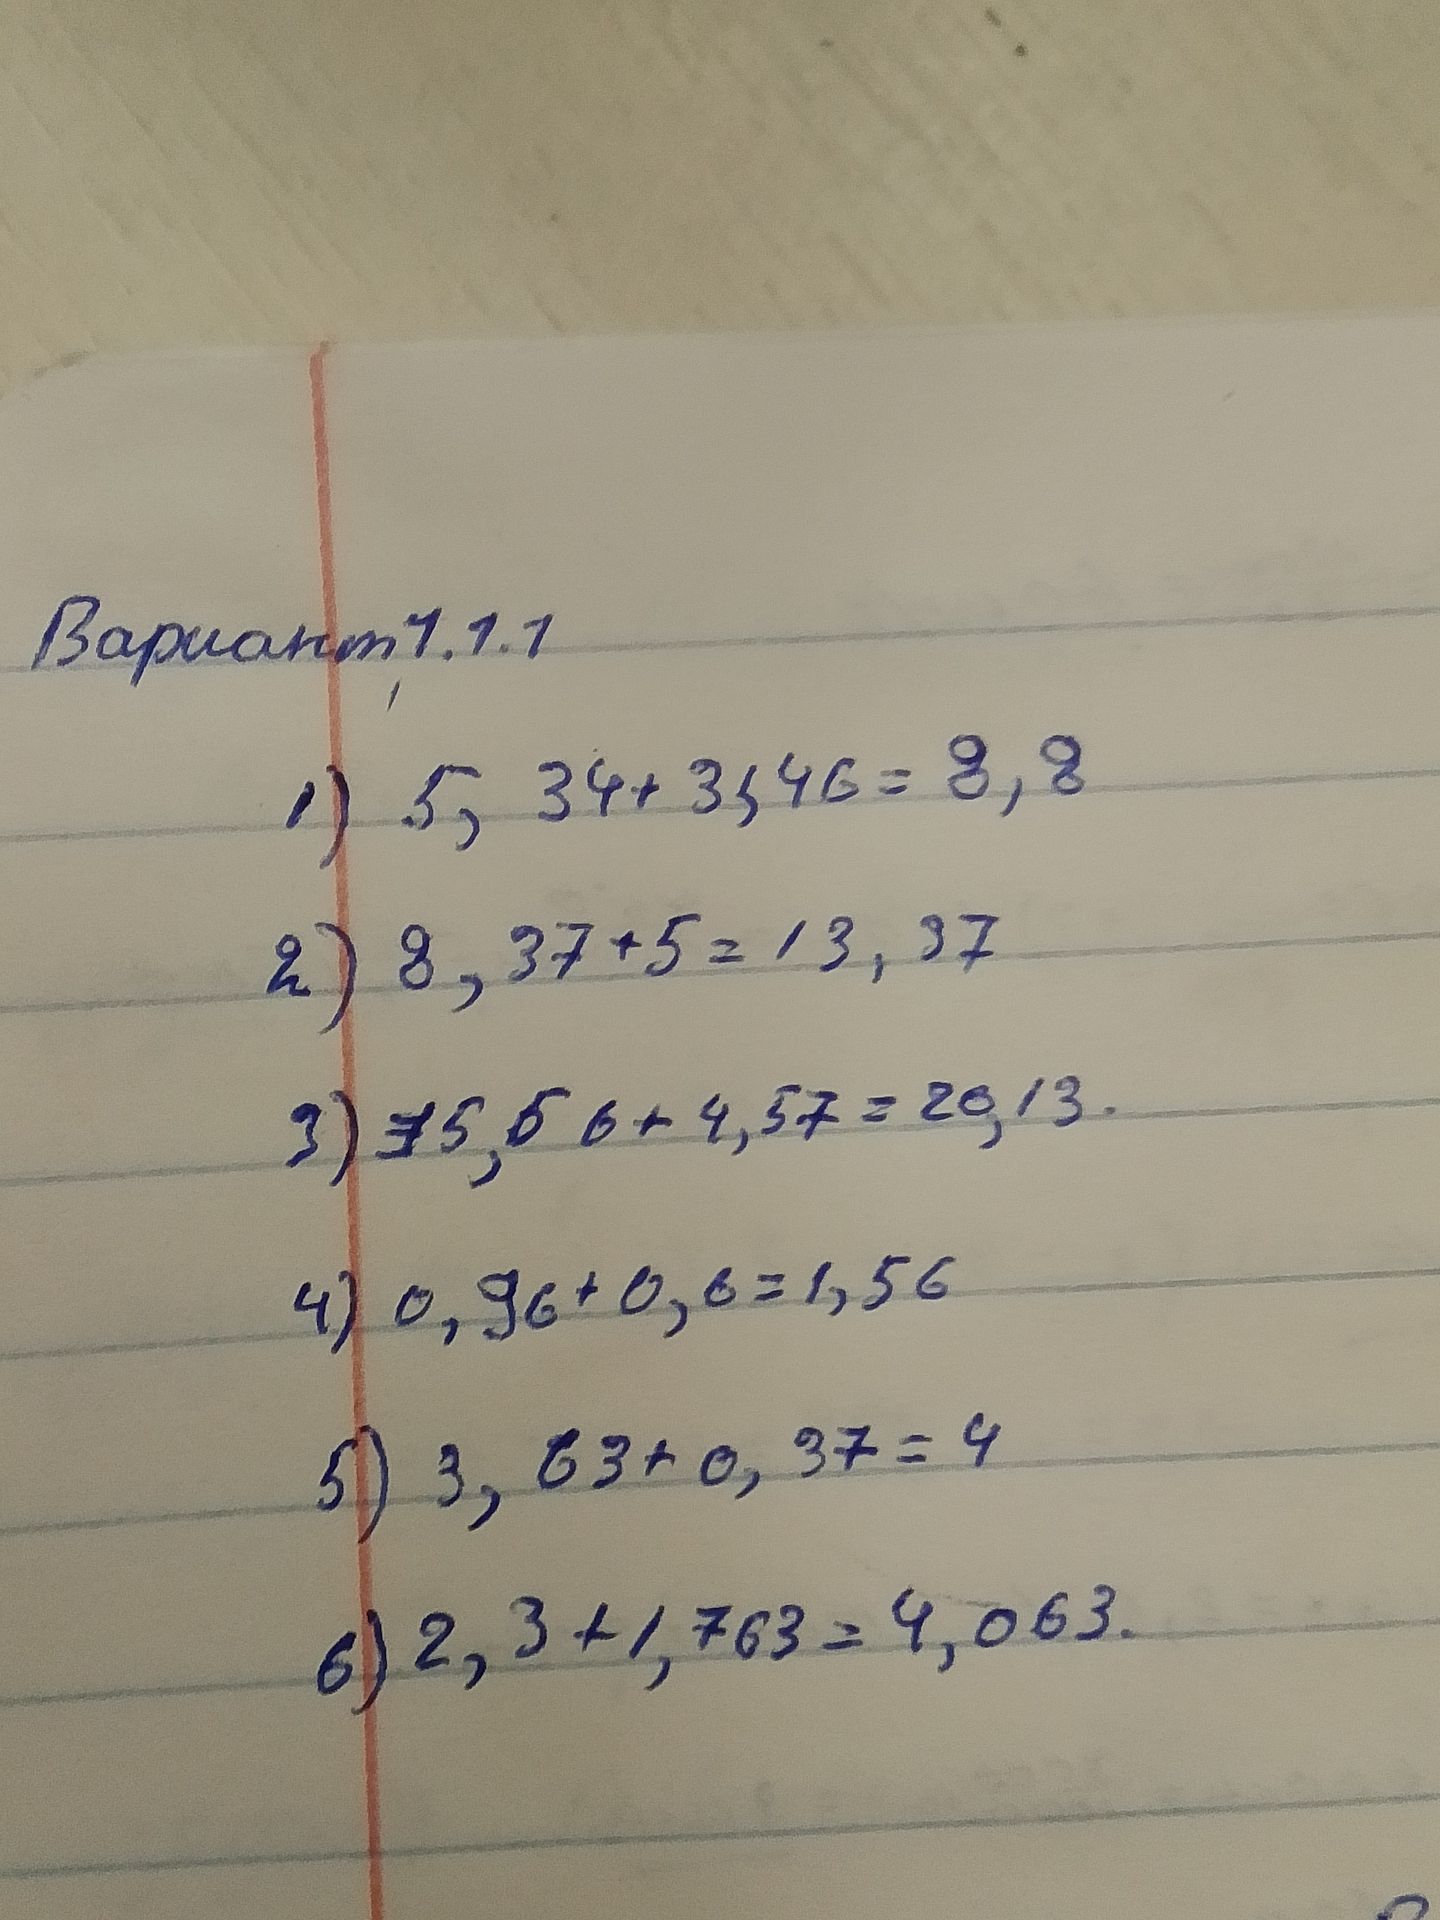 Вариант 1.1.1
1) 5,34+3,46=8,8
2) 8,37+5=13,37
3) 15,56+4,57=20,13.
4) 0,96+0,6=1,56
5) 3,63+0,37=4
6) 2,3+1,763=4,063.